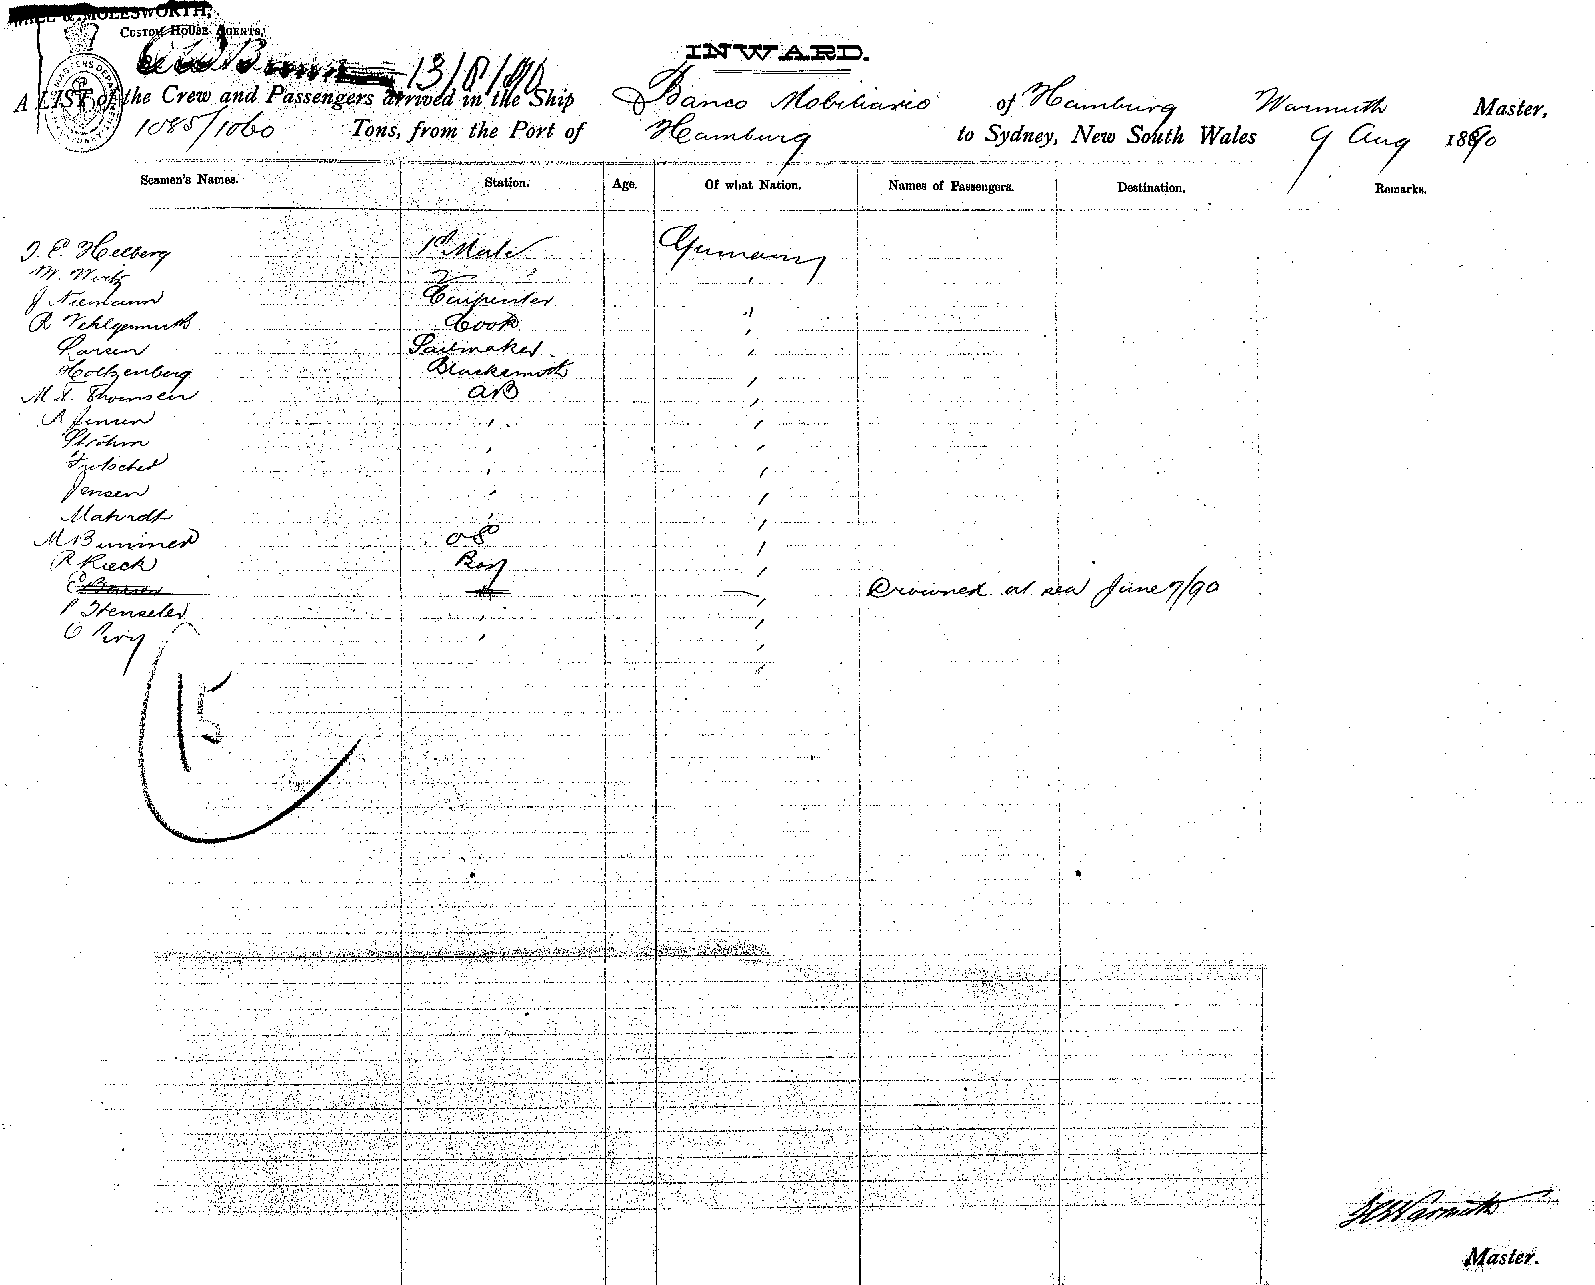 & MOLESWORTH,
CUSTOM HOUSE AGENTS,
13/8/90
INWARD.
A LIST of the Crew and Passengers arrived in the Ship Banco Mobiliario of Hamburg Warmuth Master,
1085/1060 Tons, from the Port of Hamburg to Sydney, New South Wales 9 Aug 1890
Seamen's Names. Station. Age. Of what Nation. Names of Passengers. Destination. Remarks.
J. E. Helberg 1st Mate Germany
M. Wirtz 2 " "
J Niemann Carpenter "
R Vehlgemuth Cook "
Larsen Sailmaker "
Holtzenberg Blacksmith "
M. T. Thomsen AB "
A Jensen " "
Ströhm " "
Jensen " "
Mahrdt " "
M Bummer OS "
R Rieck Boy "
Drowned at sea June 7/90
P Henseler " "
O " "
15
Warmuth
Master.